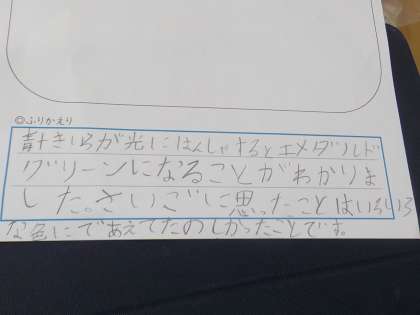 ◎ふりかえり
青むきいろが光にはんしゃするとエメラルド
グリーンになることがわかりま
した。さいごに思ったことはいろいろ
な色にであえてたのしかったことです。